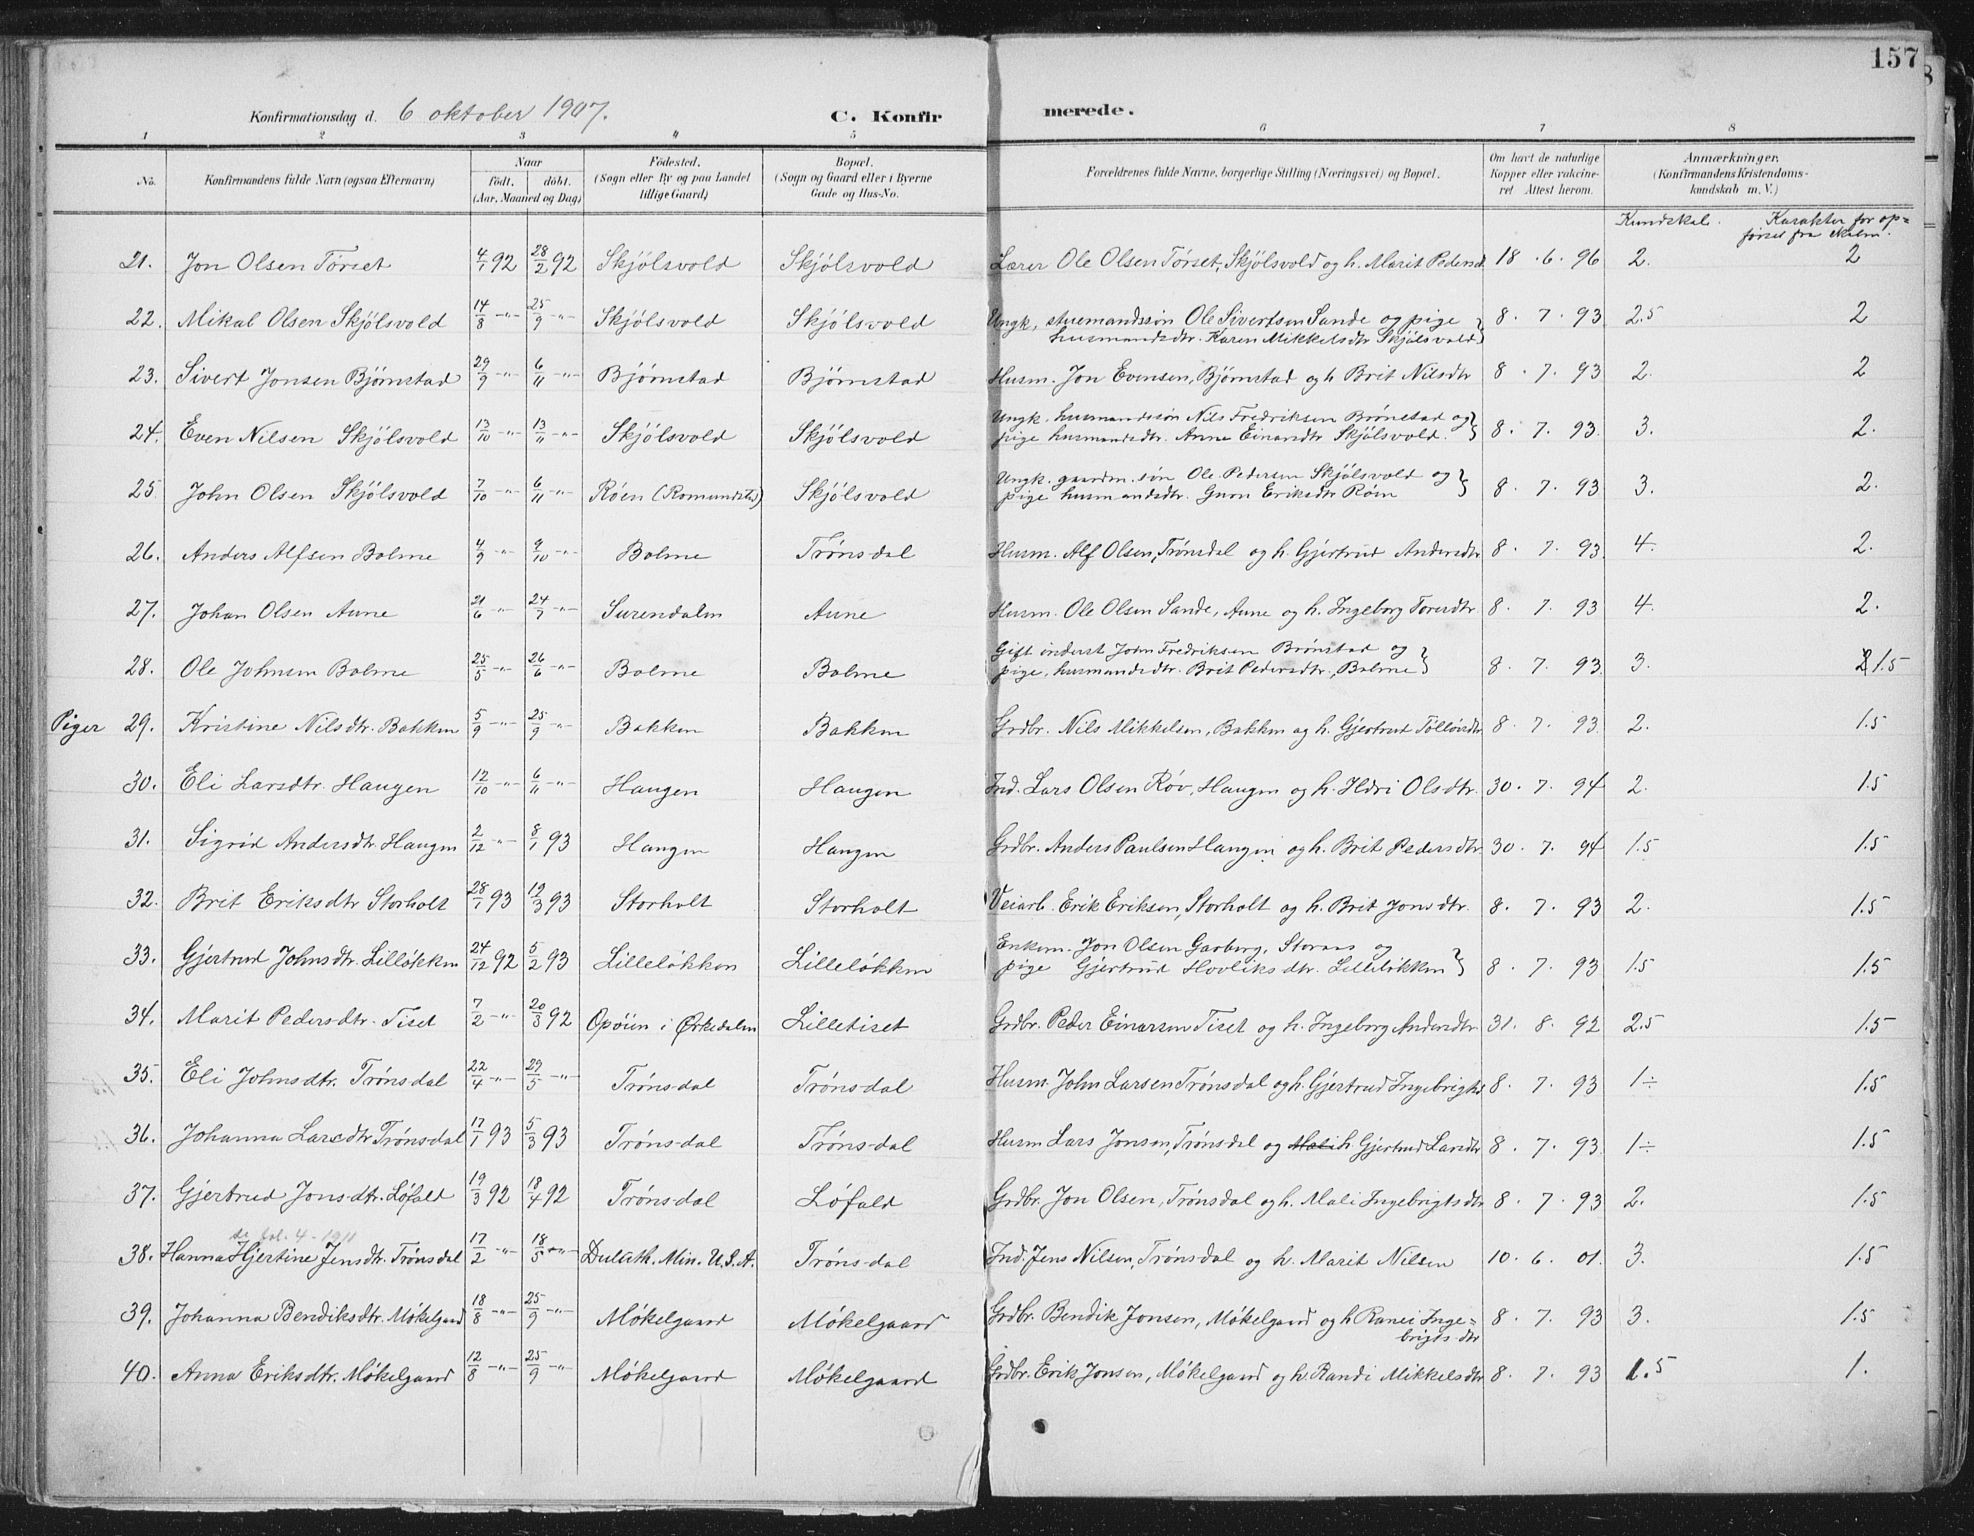 157
Konfirmationsdag d. 6 oktober 1907. C. Konfirmerede.
1 2 3 4 5 6 7 8
No. Konfirmandens fulde Navn (ogsaa Efternavn) Naar født. døbt. (Aar, Maaned og Dag) Fødested. (Sogn eller By og paa Landet tillige Gaard) Bopæl. (Sogn og Gaard eller i Byerne Gade og Hus-No. Forældrenes fulde Navne, borgerlige Stilling (Næringsvei) og Bopæl. Om havt de naturlige Kopper eller vakcineret Attest herom. Anmærkninger. (Konfirmandens Kristendomskundskab m. V.)
Kundskab. Karakter for op=
førsel fra skolen.
21. Jon Olsen Tørset 4/1 92 28/2 92 Skjölsvold Skjölsvold Lærer Ole Olsen Tørset, Skjölsvold og h. Marit Pedersd 18 . 6 . 96 2. 2
22. Mikal Olsen Skjölsvold 14/8 -"- 25/9 -"- Skjölsvold Skjölsvold Ungk, stuemandssøn Ole Sivertsen Sande og pige
husmandsdtr. Karen Mikkelsdtr Skjölsvold} 8 . 7 . 93 2.5 2
23. Sivert Jonsen Bjørnstad 29/9 -"- 6/11 -"- Bjørnstad Bjørnstad Husm. Jon Evensen, Bjørnstad og h Brit Nilsdtr 8 . 7 . 93 2. 2
24. Even Nilsen Skjölsvold 13/10 -"- 13/11 -"- Skjölsvold Skjölsvold Ungk. husmandssøn Nils Fredriksen Brønstad og
pige husmandsdtr. Anne Einarsdtr Skjölsvold.} 8 . 7 . 93. 3. 2.
25. John Olsen Skjölsvold 7/10 -"- 6/11 -"- Røen (Romundst.) Skjölsvold Ungk. gaardm.søn Ole Pedersen Skjölsvold og
pige husmandsdtr. Guru Eriksdtr Røen} 8 . 7 . 93 3. 2.
26. Anders Alfsen Bolme 4/9 -"- 9/10 -"- Bolme Trønsdal Husm. Alf Olsen, Trønsdal og h. Gjertrud Andersdtr 8 . 7 . 93 4. 2.
27. Johan Olsen Aune 21/6 -"- 24/7 -"- Surendalen Aune Husm. Ole Olsen Sande, Aune og h. Ingeborg Toresdtr 8 . 7 . 93 4. 2.
28. Ole Johnsen Bolme 25/5 -"- 26/6 -"- Bolme Bolme Gift inderst John Fredriksen Brønstad og
pige, husmandsdtr. Brit Pedersdtr., Bolme} 8 . 7 . 93 3. 1.5
Piger 29. Kristine Nilsdtr. Bakken 5/9 -"- 25/9 -"- Bakken Bakken Grdbr. Nils Mikkelsen, Bakken og h. Gjertrud Tølløvsdtr 8 . 7 . 93. 2. 1.5
30. Eli Larsdtr. Haugen 12/10 -"- 6/11 -"- Haugen Haugen Ind. Lars Olsen Røv, Haugen og h. Ildri Olsdtr. 30 . 7 . 94 2. 1.5
31. Sigrid Andersdtr. Haugen 2/12 -"- 8/1 93 Haugen Haugen Grdbr. Anders Paulsen Haugen og h. Brit Pedersdtr 30 . 7 . 94 1.5 1.5
32. Brit Eriksdtr Storholt 28/1 93 19/3 93 Storholt Storholt Veiarb. Erik Eriksen, Storholt og h. Brit Jonsdtr. 8 . 7 . 93 2. 1.5
33. Gjertrud Johnsdtr. Lilløkken 24/12 92 5/2 93 Lilleløkken Lilleløkken Enkem. Jon Olsen Garberg, Storaas og
pige Gjertrud Hovliksdtr. Lilleløkken} 8 . 7 . 93 1.5 1.5
34. Marit Pedersdtr. Tiset 7/2 -"- 20/3 92 Opöien i Ørkedalen Lilletiset Grdbr. Peder Einarsen Tiset og h. Ingeborg Andersdtr 31 . 8 . 92 2.5 1.5
35. Eli Johnsdtr. Trønsdal 22/4 -"- 29/5 -"- Trønsdal Trønsdal Husm. John Larsen Trønsdal og h. Gjertrud Ingebrigtsd 8 . 7 . 93 1÷ 1.5
36. Johanna Larsdtr Trønsdal 17/1 93 5/3 93 Trønsdal Trønsdal Husm Lars Jonsen, Trønsdal og h. Gjertrud Larsdtr 8 . 7 . 93 1÷ 1.5
37. Gjertrud Jonsdtr. Løfald 19/3 92 18/4 92 Trønsdal Løfald Grdbr. Jon Olsen, Trønsdal og h. Mali Ingebrigtsdtr 8 . 7 . 93 2. 1.5
4 - 1911
38. Hanna Hjertine Jensdtr. Trønsdal 17/2 -"- 18/5 -"- Duluth. Min. U.S.A. Trønsdal Ind. Jens Nilsen, Trønsdal og h. Marit Nilsen 10 . 6 . 01. 3. 1.5
39. Johanna Bendiksdtr. Møkelgaard 18/8 -"- 25/9 -"- Møkelgaard Møkelgaard Grdbr. Bendik Jonsen, Møkelgaard og h Ranei Inge=
brigtsdtr 8 . 7 . 93 3. 1.5
40. Anna Eriksdtr. Møkelgaard 12/8 -"- 25/9 -"- Møkelgaard Møkelgaard Grdbr. Erik Jonsen, Møkelgaard og h. Randi Mikkelsdtr 8 . 7 . 93 1.5 1.